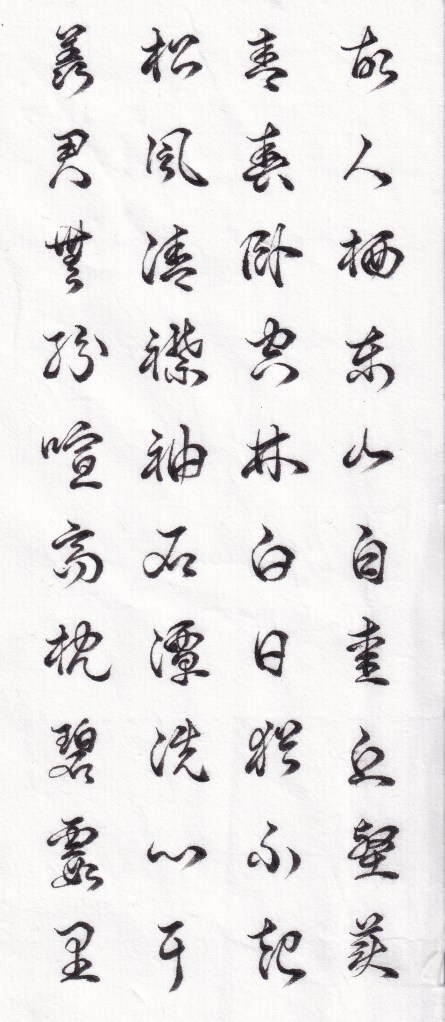 故人栖東山自愛丘壑美
青春卧空林白日猶不起
松風清襟袖石潭洗心耳
羨君無紛喧高枕碧霞里